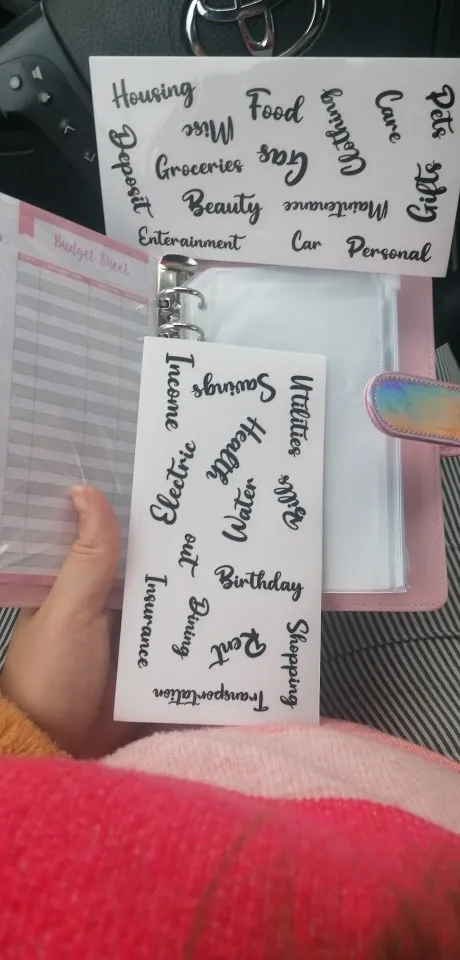 Housing
Food
Clothing
Care
Pets
Misc
Deposit
Groceries
Gas
Beauty
Maintenance
Gifts
Enterainment
Car
Personal
Budget Sheet
Income
Savings
Utilities
Health
Electric
Water
Bills
out
Birthday
Insurance
Dining
Rent
Shopping
Transportation